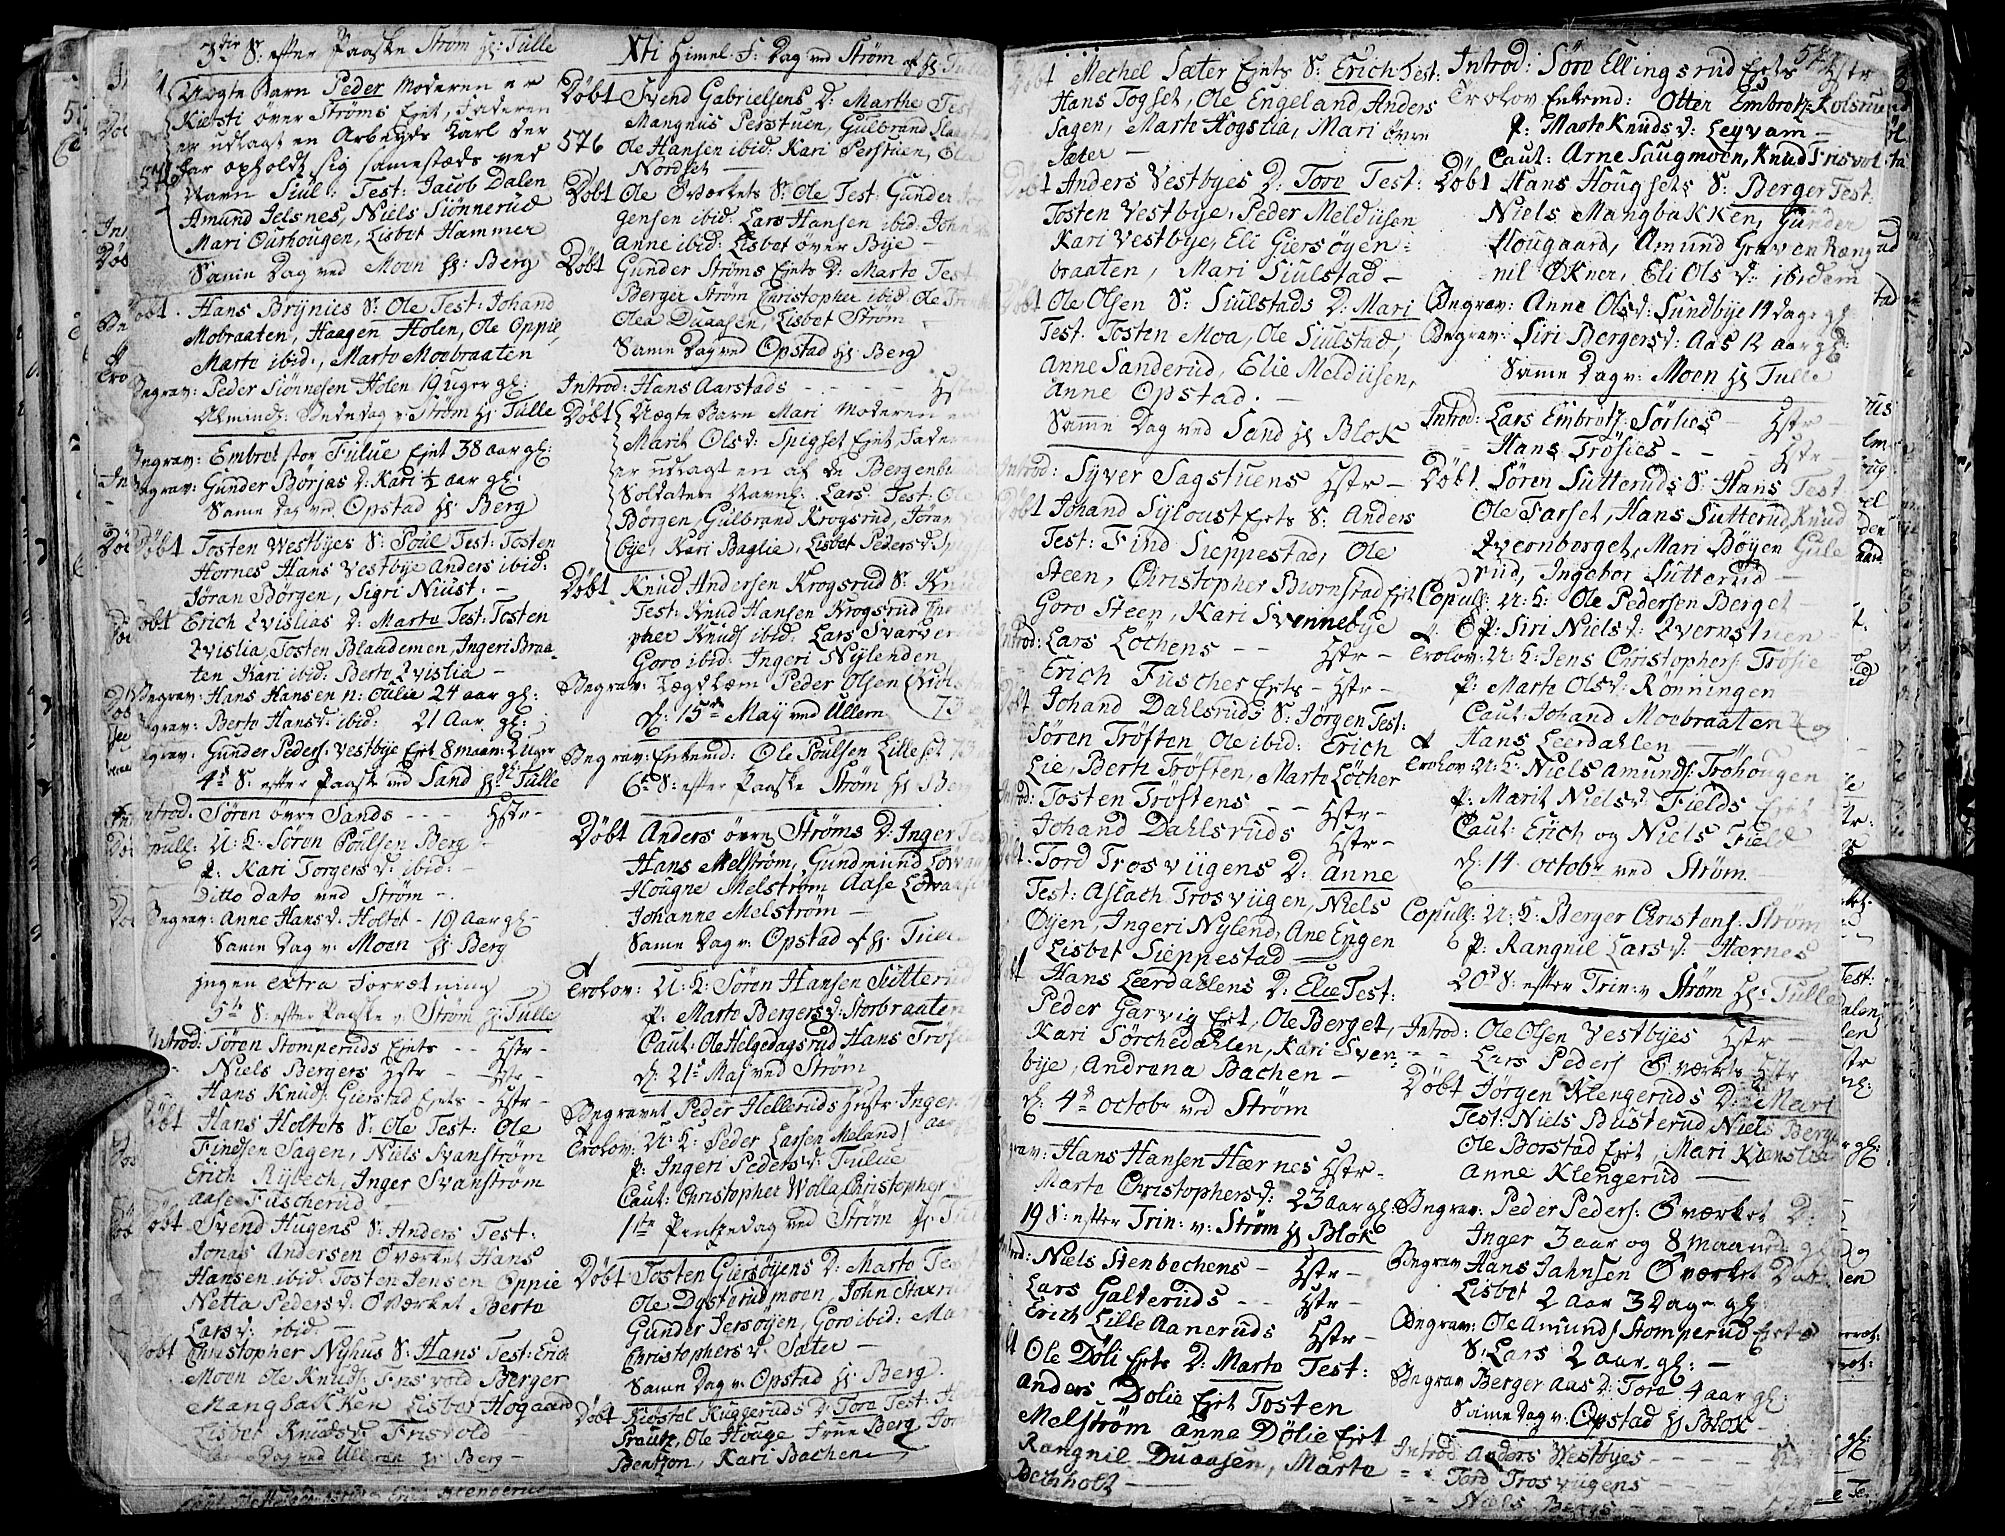 3die S: efter Paaske Strøm H: Tulle
Uægte Barn Peder Moderen er
Kiersti över Strøms Ejet, Faderen
er udlagt en Arbejds Karl der
har opholdt sig samestæds ved
Navn Siul: Test: Jacob Dalen
Amund Jelsnes, Niels Siönnerud
Mari Ourhougen, Lisbet Hammer
Samme Dag ved Moen H: Berg
Hans Brynies S: Ole Test: Johand
Mobraaten, Haagen Holen, Ole Oppie
Marte ibid:, Marte Moebraaten
Begrav: Peder Siønnesen Holen 19 uger gl:
Almind: Bededag v: Strøm H: Tulle
Begrav: Embret stor Tulue Ejet 38 aar gl:
Begrav: Gunder Börjas D: Kari ½ aar gl:
Samme Dag ved Opstad H: Berg
Døbt Tosten Westbyes S: Poul Test: Tosten
Hornes Hans Vestbye Anders ibid:
Jøran Børgen, Sigri Niust: -
Døbt Erich Qvislias D: Marte Test: Tosten
Qvislia, Tosten Blaudemen, Ingeri Braa-
ten Kari ibid: Berte Qvislia -
Begrav: Hans Hansen n: Oulie 24 aar gl:
Begrav: Berte Hansd: ibid: 21 Aar gl:
Begrav: Gunder Peders: Vestbye Ejet 8 maan: 2 uger
4de S: efter Paask ved Sand H: Tulle
Introd: Søren övre Sands - - - Hstr-
Copull: U: K: Søren Poulsen Berg -
P: Kari Torgersd: ibid: -
Ditto dato ved Strøm -
Begrav: Anne Hansd: Holtet - 10 Aar gl-
Samme Dag v: Moen H: Berg
Jngen extra Forretning
5te S: efter Paaske v: Strøm H: Tulle
Introd: Søren Stomperuds Ejets - - Hstr-
Niels Bergers Hstr - - Hstr-
Hans Knuds: Gierstad Ejets - Hstr-
Døbt Hans Holtets S: Ole Test: Ole
Findsen Sagen, Niels Svanstrøm
Erich Rybech, Inger Svanstrøm
Aase Fuscherud -
Døbt Svend Hugens S: Anders Test:
Jonas Andersen O værket Hans
Hansen ibid: Tosten Jensen Oppie
Netta Pedersd: O værket Berte
Larsd: ibid: -
Døbt Christopher Nyhus S: Hans Test: Erich
Moen Ole Knuds: Frisvold Berger
Mangbakken Lisbet Hogaard
Lisbet Knudsd: Frisvold -
Dag ved Ullern H: Berg -
Xti Himel-F: Dag ved Strøm H:
Døbt Svend Gabrielsens D: Marthe Test
Mangnus Perstuen, Gulbrand
576 Ole Hansen ibid: Kari Perstuen,
Nordset -
Døbt Ole Oværkets S: Ole Test: Gunder
gensen ibid: Lars Hansen ibid: John
Anne ibid: Lisbet över Bye -
Døbt Gunder Strøms Ejets D: Marte Test
Berger Strøm Christopher ibid: Ole
Olea Duaasen, Lisbet Strøm
Samme Dag ved Opstad H: Berg
Introd: Hans Aarstads - - - - Hstr
Døbt Uægte Barn Mari Moderen
Marit Olsd: Spigset Ejet Faderen
er udlagt en af de Bergenhus
Soldatere Navnl: Lars Test: Ole
Børgen, Gulbrand Krogsrud, Jøran
bye, Kari Baglie, Lisbet Pedersd:
Døbt Knud Andersen Krogsrud S: Knud
Test: Knud Hansen Krogsrud Christ
pher Knuds: ibid: Lars Svarverud
Goro ibid: Ingeri Nylenden
Begrav: Lægdslæm Peder Olsen
d: 15de May ved Ullern 73
Begrav: Enkemd: Ole Poulsen Lilleset 73
6te S: efter Paaske Strøm H: Berg
Døbt Anders övre Strøms D: Inger Test
Hans Melstrøm, Gundmund
Hougne Melstrøm Aase
Johanne Melstrøm -
Samme Dag v: Opstad H: Tulle
Trolov: U: K: Søren Hansen Sütterud
P: Marte Bergersd: Storbraaten
Caut: Ole Helgedagsrud Hans Trøsie
d: 21de Maj ved Strøm
Begravet Peder Helleruds Hstr Inger
Trolov: U: K: Peder Larsen Meland
P: Ingeri Pedersd: Tulue -
Caut: Christopher Wolla, Christopher
1ste Pentzedag ved Strøm H:
Døbt Tosten Giersøyens D: Marte Test
Ole Dysterudmoen, John Staxrud
Gunder Jersøyen, Goro ibid: Ma
Christophersd: Sæter -
Samme Dag v: Opstad H: Berg
Døbt Kiøstel Kuggeruds D: Tore Test:
Prautz, Ole Houge Frue Berg
Bentzon, Kari Bachen
Døbt Mechel Sæter Ejets S: Erich Test:
Hans Togset, Ole Engeland Anders
Sagen, Marte Hogslia, Mari övre
Sæter -
Døbt Anders Vestbyes D: Tore Test:
Tosten Vestbye, Peder Meldiisen
Kari Vestbye, Eli Giersøyen-
braaten, Mari Siulstad -
Døbt Ole Olsen S: Siulstads D: Mari
Test: Tosten Moa, Ole Siulstad,
Anne Sanderud, Elie Meldiisen,
Anne Opstad. -
Samme Dag ved Sand H: Blok
Introd: Syver Sagstuens Hstr -
Døbt Johand Syloust Ejets S: Anders
Test: Find Sieppestad, Ole
Steen, Christopher Burnstad Ejet
Goro Steen, Kari Svennebye
Introd: Lars Lochens - - Hstr -
Erich Fuscher Ejets - Hstr -
Døbt Johand Dahlsruds S: Jørgen Test:
Søren Trøften Ole ibid: Erich
Lie, Berte Trøften, Marte Løcher
Introd: Tosten Trøftens - - Hstr -
Johand Dahlsruds Hstr -
Døbt Tord Trosviigens D: Anne
Test: Aslach Trosviigen, Niels
Øyen, Ingeri Nylend, Ane Engen
Lisbet Sieppestad -
Døbt Hans Leerdahlens D: Elie Test:
Peder Garvig Ejet, Ole Berget,
Kari Sørchedahlen, Kari Sven-
bye, Andrena Bachen -
d: 4de octobr ved Strøm
Begrav: Hans Hansen Hærnes Hstr-
Marte Christophersd: 23 aar gl:
19 S: efter Trin: v: Strøm H Blok
Introd: Niels Stenbechens - Hstr -
Lars Galteruds - - Hstr -
Erich Lille Aaneruds Hstr -
Døbt Ole Døli Ejets D: Marte Test:
Anders Dølie Ejet Tosten
Melstrøm Anne Dølie Ejet
Rangnil Duaasen, Marte
Bechholt -
Introd: Söro Ellingsrud Ejets Hstr
Trolov Enkemd: Otter Embrets: Kolsrud
P: Marte Knudsd: Leyvam -
Caut: Arne Saugmoen, Knud Frisvol
Døbt Hans Hougsets S: Berger Test:
Niels Mangbakken, Gunder
Hougaard, Amund Graven Rang
nil Økner, Eli Olsd: ibidem
Begrav: Anne Olsd: Sundbye 14 dage gl
Begrav: Siri Bergersd: Aas 12 aar gl:
Samme Dag v: Moen H Tulle
Introd: Lars Embrets: Sørlies - Hstr -
Hans Trøsies - - - Hstr -
Døbt Søren Sütteruds S: Hans Test
Ole Tarset, Hans Sutterud, Knud
Qvernborget, Mari Bøyen Gule
rud, Ingebor Sütterud -
Copull: U: K: Ole Pedersen Berget -
P: Siri Nielsd: Qvernstuen
Trolov: U: K: Jens Christophers: Trøsie
P: Marte Olsd: Rønningen
Caut: Johand Moebraaten og
Hans Leerdahlen -
Trolov: U: K: Niels Amunds: Trohougen
P: Marit Nielsd: Fields Ejet
Caut: Erich og Niels Field
d: 14 octobr ved Strøm
Copull: U: K: Berger Christens: Strøm
P: Rangnil Larsd: Hærnes
20de S: efter Trin: v: Strøm H: Tulle
Introd: Ole Olsen Vestbyes Hstr -
- - Lars Peders O værkets Hstr
Døbt Jørgen Klengeruds D: Mari
Test: Niels Busterud Niels Berg
Ole Borstad Ejet, Mari Kienslia
Anne Klengerud -
Begrav: Peder Peders: O værket D:
Inger 3 aar og 8 maaned gl
Begrav Hans Jahnsen O værket Datt
Lisbet 2 Aar 3 Dage gl:
Begrav: Ole Amunds Stomperud Ejets
S: Lars 2 aar gl: -
Begrav Berger Aas D: Tore 4 aar gl:
Samme Dag v: Opstad H Blok
Introd Anders Westbyes - - Hstr
" " Tord Trosviigens - - -
" " Niels Bergs - - -